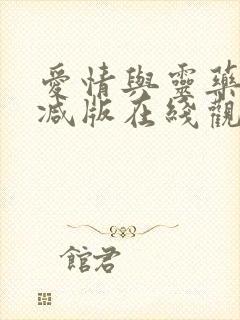 愛情與靈藥
減版在綫觀
館君